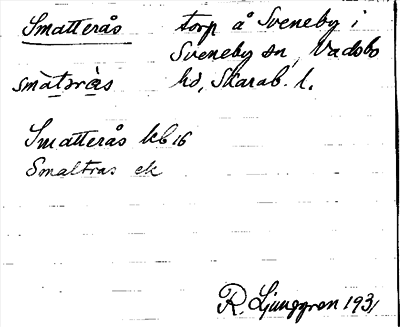 Smatterås torp å Sveneby i
Sveneby sn, Vadsbo
smàtərà̱s hd, Skarab. l.
Smatterås kb 16
Smaltras ek
R. Ljunggren 1931